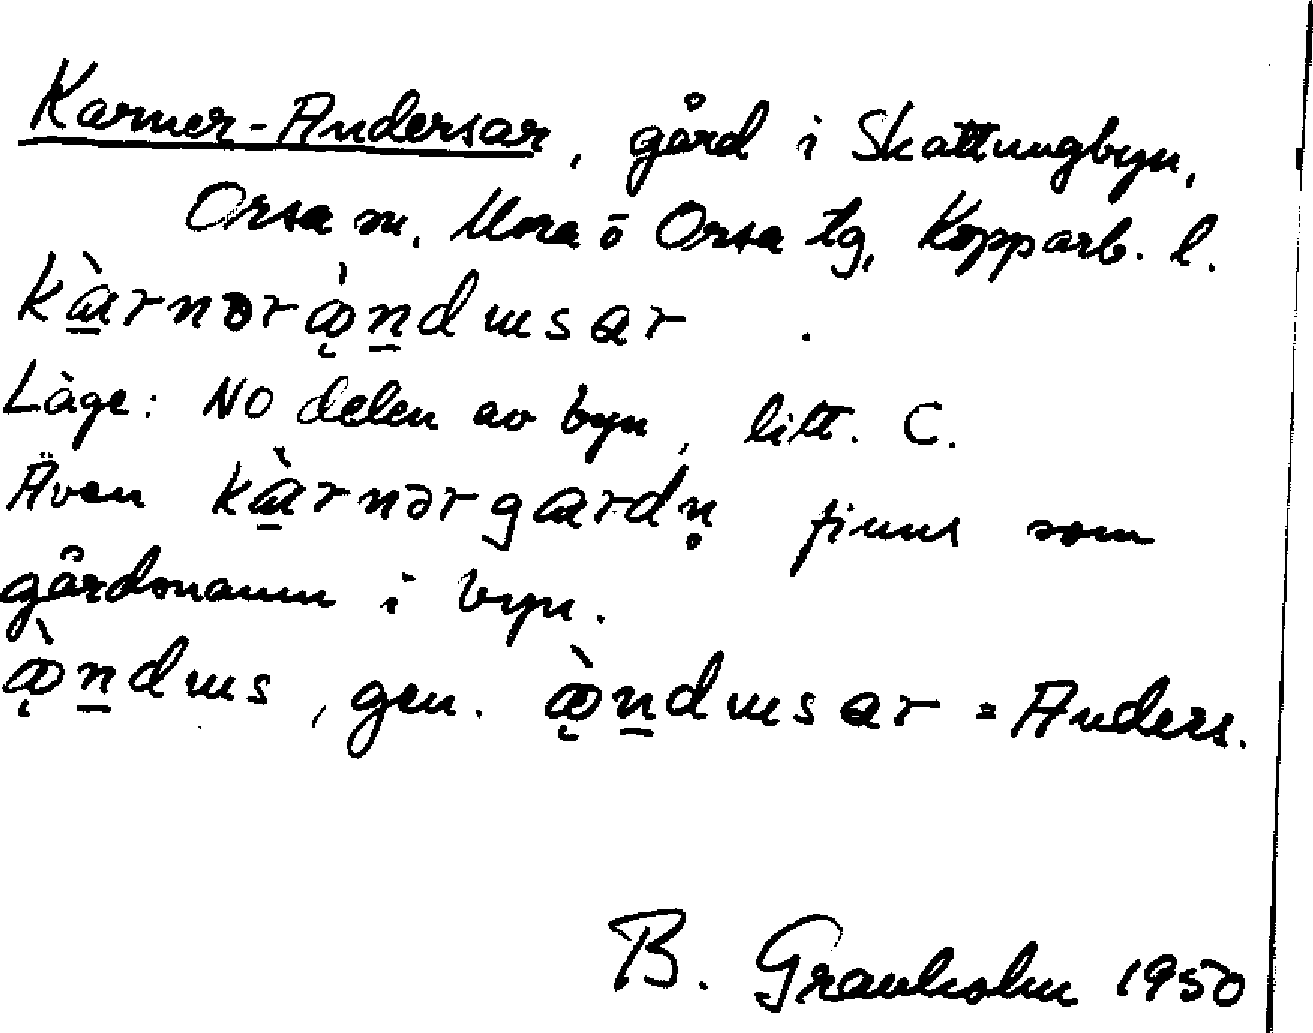 Karner-Andersar, gård i Skattungbyn,
Orsa sn, Mora o Orsa tg, Kopparb. l.
kàrnərą̀ndɯsar.
Läge: NO delen av byn, litt. C.
Även kàrnərgardn̥ finns som
gårdsnamn i byn.
ą̀ndɯs, gen. ą̀ndɯsar = Anders.
B. Granholm 1950